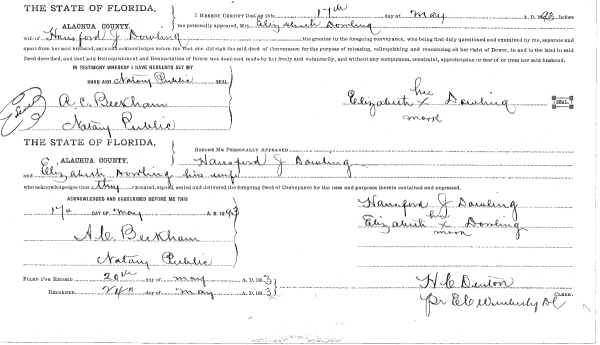 THE STATE OF FLORIDA,
ALACHUA COUNTY.
I HEREBY CERTIFY that on this 17th day of May A. D. 1893 before
me personally appeared, Mrs. Elizabeth Dowling
wife of Hansford J Dowling the grantor in the foregoing conveyance, who being first duly questioned and examined by me, separate and
apart from her said husband, as such acknowledges before me that she did sign the said deed of Conveyance for the purpose of releasing, relinquishing and renouncing all her right of Dower, in and to the land in said
Deed described, and that said Relinquishment and Renunciation of Dower was done and made by her freely and voluntarily, and without any compulsion, constraint, apprehension or fear of or from her said husband.
IN TESTIMONY WHEREOF I HAVE HEREUNTO SET MY
HAND AND Notary Public SEAL
Seal
A. C. Beckham
Notary Public
her
Elizabeth x Dowling SEAL.
mark
THE STATE OF FLORIDA,
ALACHUA COUNTY.
BEFORE ME PERSONALLY APPEARED Hansford J Dowling
and Elizabeth Dowling his wife
who acknowledges that they executed, signed, sealed and delivered the foregoing Deed of Conveyance for the uses and purposes therein contained and expressed.
ACKNOWLEDGED AND SUBSCRIBED BEFORE ME THIS
17th DAY OF May A. D. 1893
A. C. Beckham
Notary Public
Hansford J. Dowling
her
Elizabeth x Dowling
mark
FILED FOR RECORD 20th day of May A. D. 1893
RECORDED 24th day of May A. D. 1893
H C Denton
CLERK.
Pr E C Wimberly DC